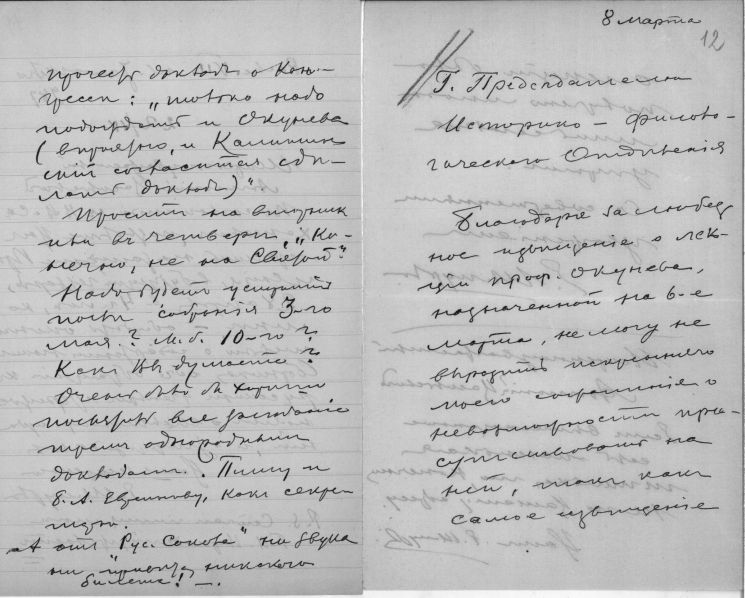 прочесть докладъ о Кон-
грессѣ: „только надо
подождать и Окунева
(вѣроятно, и Калитин-
скій согласится сдѣ-
лать докладъ)“.
Просить на вторникъ
или въ четвергъ, „Ко-
нечно, не на Святой“.
Надо будетъ устроить
послѣ собранія 3-го
мая? М. б. 10-го?
Какъ Вы думаете?
Очень было бы хорошо
посвятить все засѣданіе
тремъ однороднымъ
докладамъ. Пишу и
Е. А. как секре-
тарю.
А отъ „Рус. Сокола“ ни звука
ни привѣта, никакого
билета! —.
8 марта
12
Г. Предсѣдателю
Историко-филоло-
гическаго Отдѣленія
Благодаря за любез
ное извѣщеніе о лек-
ціи проф. Окунева,
назначенной на 6-е
марта, не могу не
выразить искренняго
моего сожалѣнія о
невозможности при-
сутствовать на
ней, такъ какъ
самое извѣщеніе